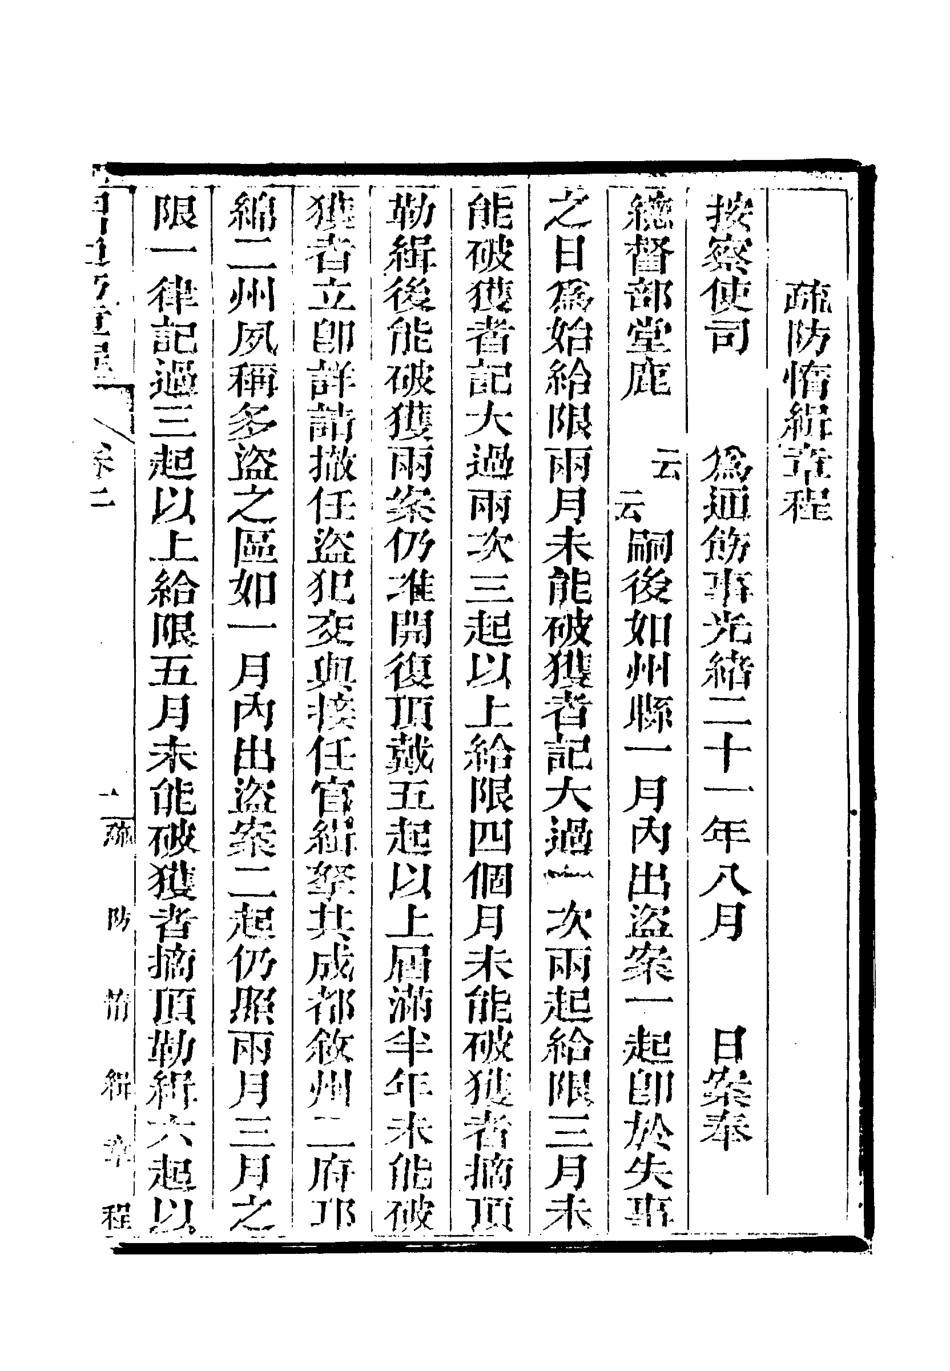 疏防惰緝章程
按察使司　　爲通飭事光緒二十一年八月　　日案奉
總督部堂鹿　云云嗣後如州縣一月內出盜案一起卽於失事
之日爲始給限兩月未能破獲者記大過一次兩起給限三月未
能破獲者記大過兩次三起以上給限四個月未能破獲者摘頂
勒緝後能破獲兩案仍准開復頂戴五起以上屆滿半年未能破
獲者立卽詳請撤任盜犯交與接任官緝拏其成都敘州二府邛
綿二州夙稱多盜之區如一月內出盜案二起仍照兩月三月之
限一律記過三起以上給限五月未能破獲者摘頂勒緝六起以
章程　卷二　疏防惰緝章程